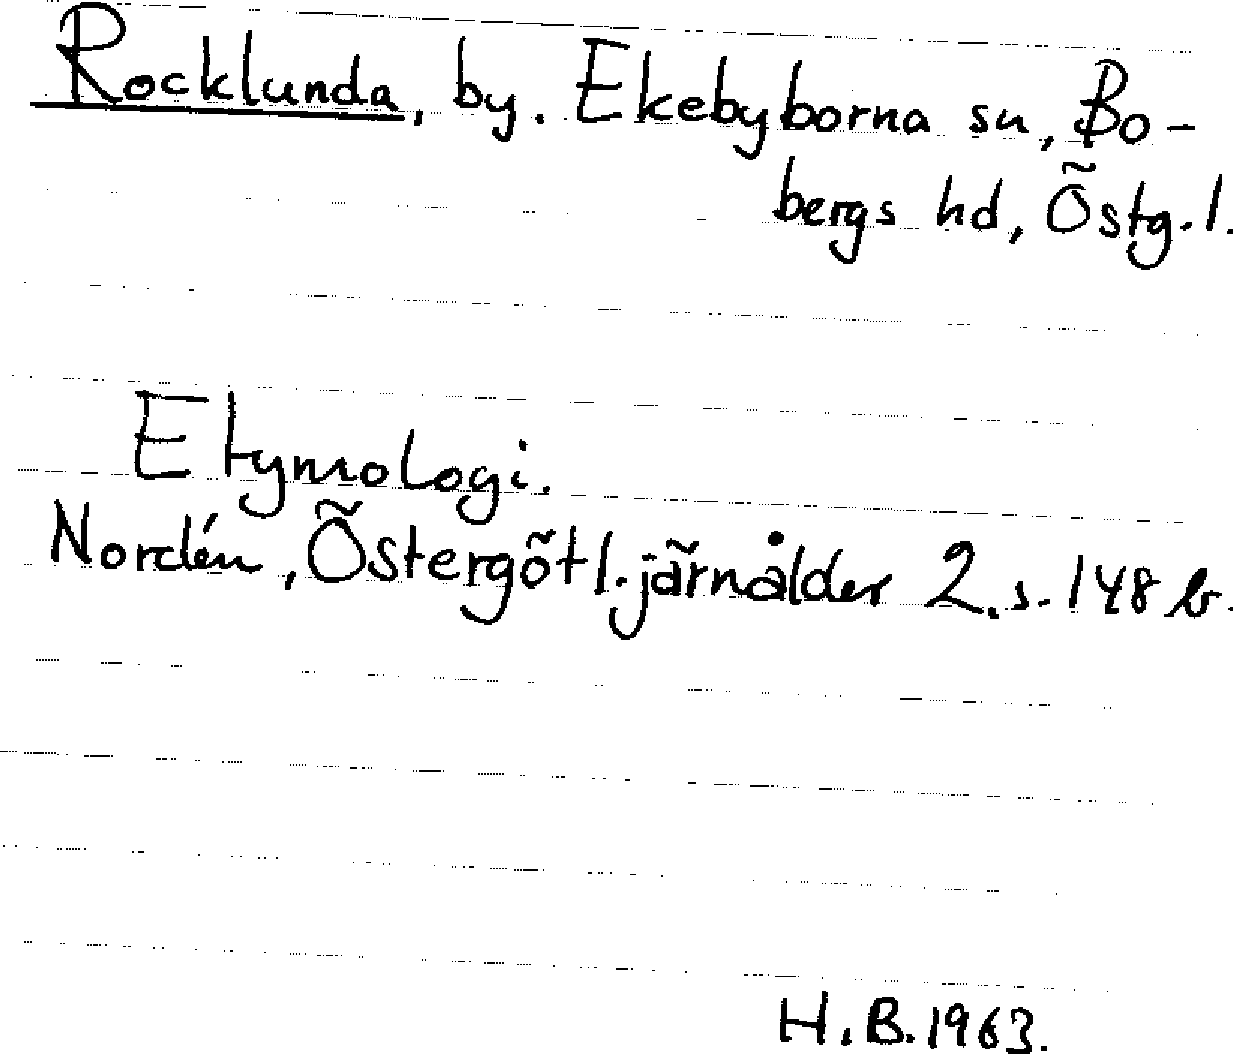 Rocklunda, by. Ekebyborna sn, Bo-
bergs hd, Östg.l.
Etymologi.
Nordén, Östergötl. järnålder 2. s. 148 b.
H.B. 1963.